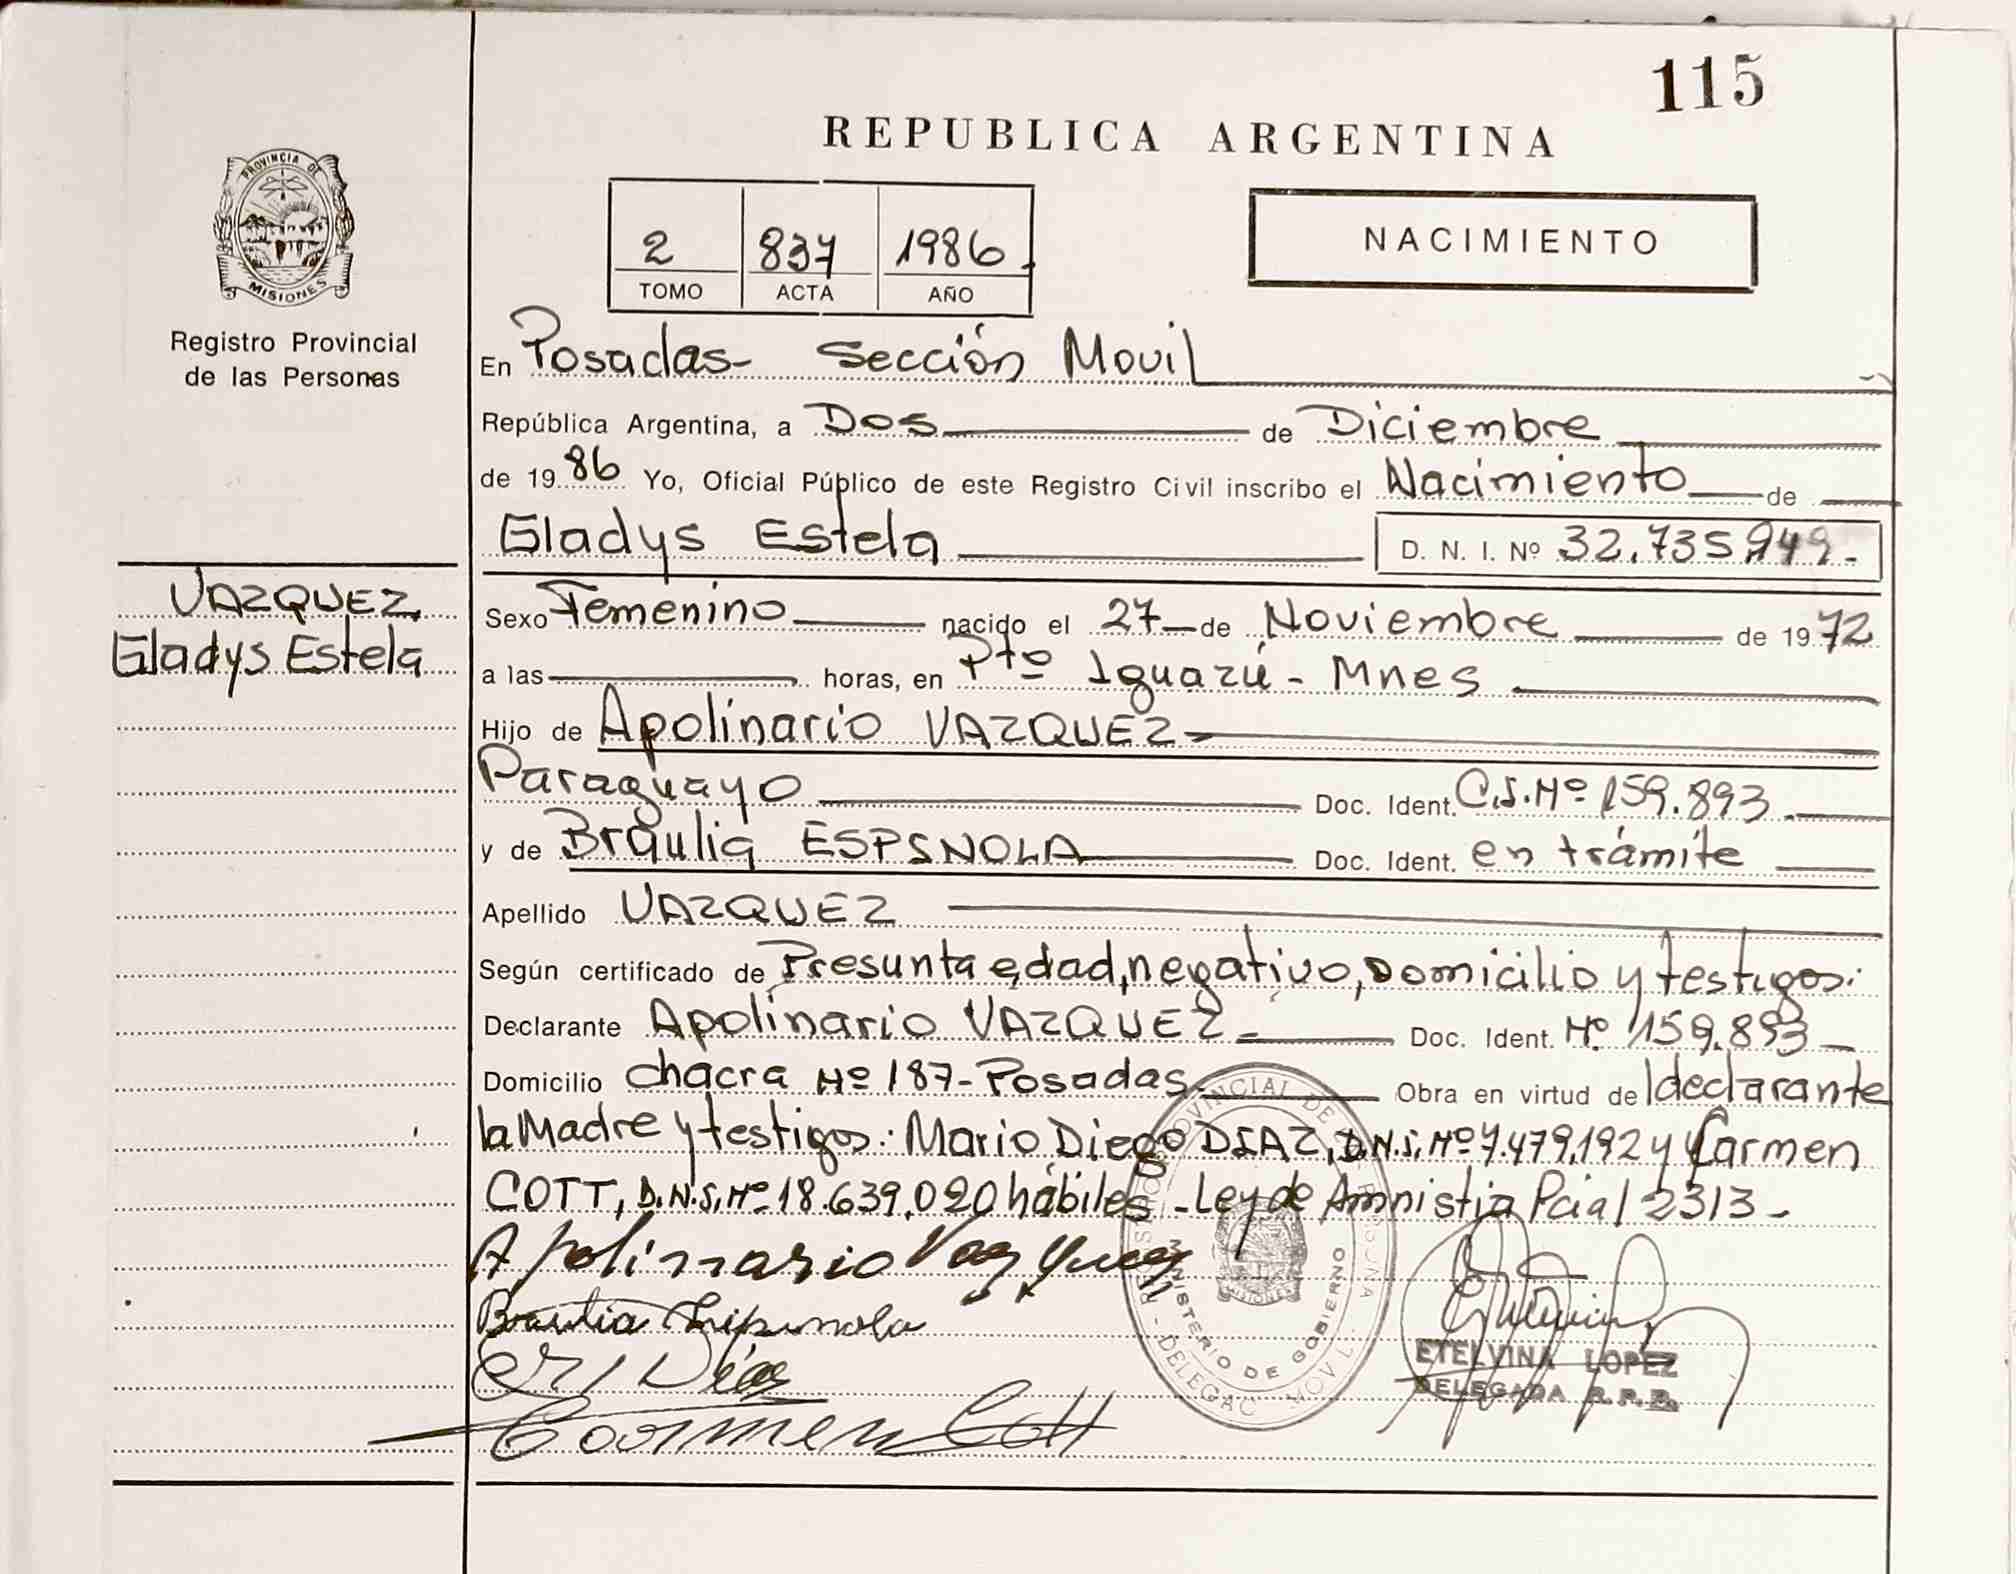 115
REPUBLICA ARGENTINA
PROVINCIA DE
MISIONES
Registro Provincial
de las Personas
2 837 1986
TOMO ACTA AÑO
NACIMIENTO
En Posadas- Sección Movil
República Argentina, a Dos de Diciembre
de 1986 Yo, Oficial Público de este Registro Civil inscribo el Nacimiento de
Gladys Estela D. N. I. Nº 32.735.949.-
VAZQUEZ
Gladys Estela
Sexo Femenino nacido el 27 de Noviembre de 1972
a las horas, en Pto Iguazú - Mnes
Hijo de Apolinario VAZQUEZ
Paraguayo Doc. Ident. C.I.Nº 159.893.
y de Braulia ESPINOLA Doc. Ident. en trámite
Apellido VAZQUEZ
Según certificado de Presunta edad, negativo, Domicilio y testigos.
Declarante Apolinario VAZQUEZ Doc. Ident. Nº 159.893
Domicilio chacra Nº 187-Posadas Obra en virtud de declarante
la Madre y testigos: Mario Diego DIAZ, D.N.I. Nº 7.479.192 y Carmen
COTT, D.N.I. Nº 18.639.020 hábiles - Ley de Amnistia Pcial 2313-
Apolinario Vazquez
Braulia Espinola
Diaz
Carmen Cott
MINISTERIO DE GOBIERNO
MISIONES
ETELVINA LOPEZ
DELEGADA R.P.P.